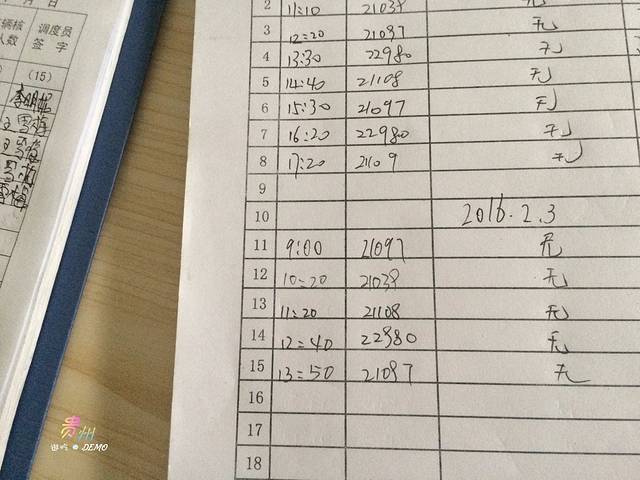 月 日
辆核
人数
调度员
签 字
(15)
2 11:10 21038 无
3 12:20 21037 无
4 13:30 22980 无
5 14:40 21108 无
6 15:30 21097 无
7 16:20 22980 无
8 17:20 21109 无
9
10 2016.2.3
11 9:00 21097 无
12 10:20 21038 无
13 11:20 21108 无
14 12:40 22980 无
15 13:50 21097 无
16
17
18
贵州
DEMO